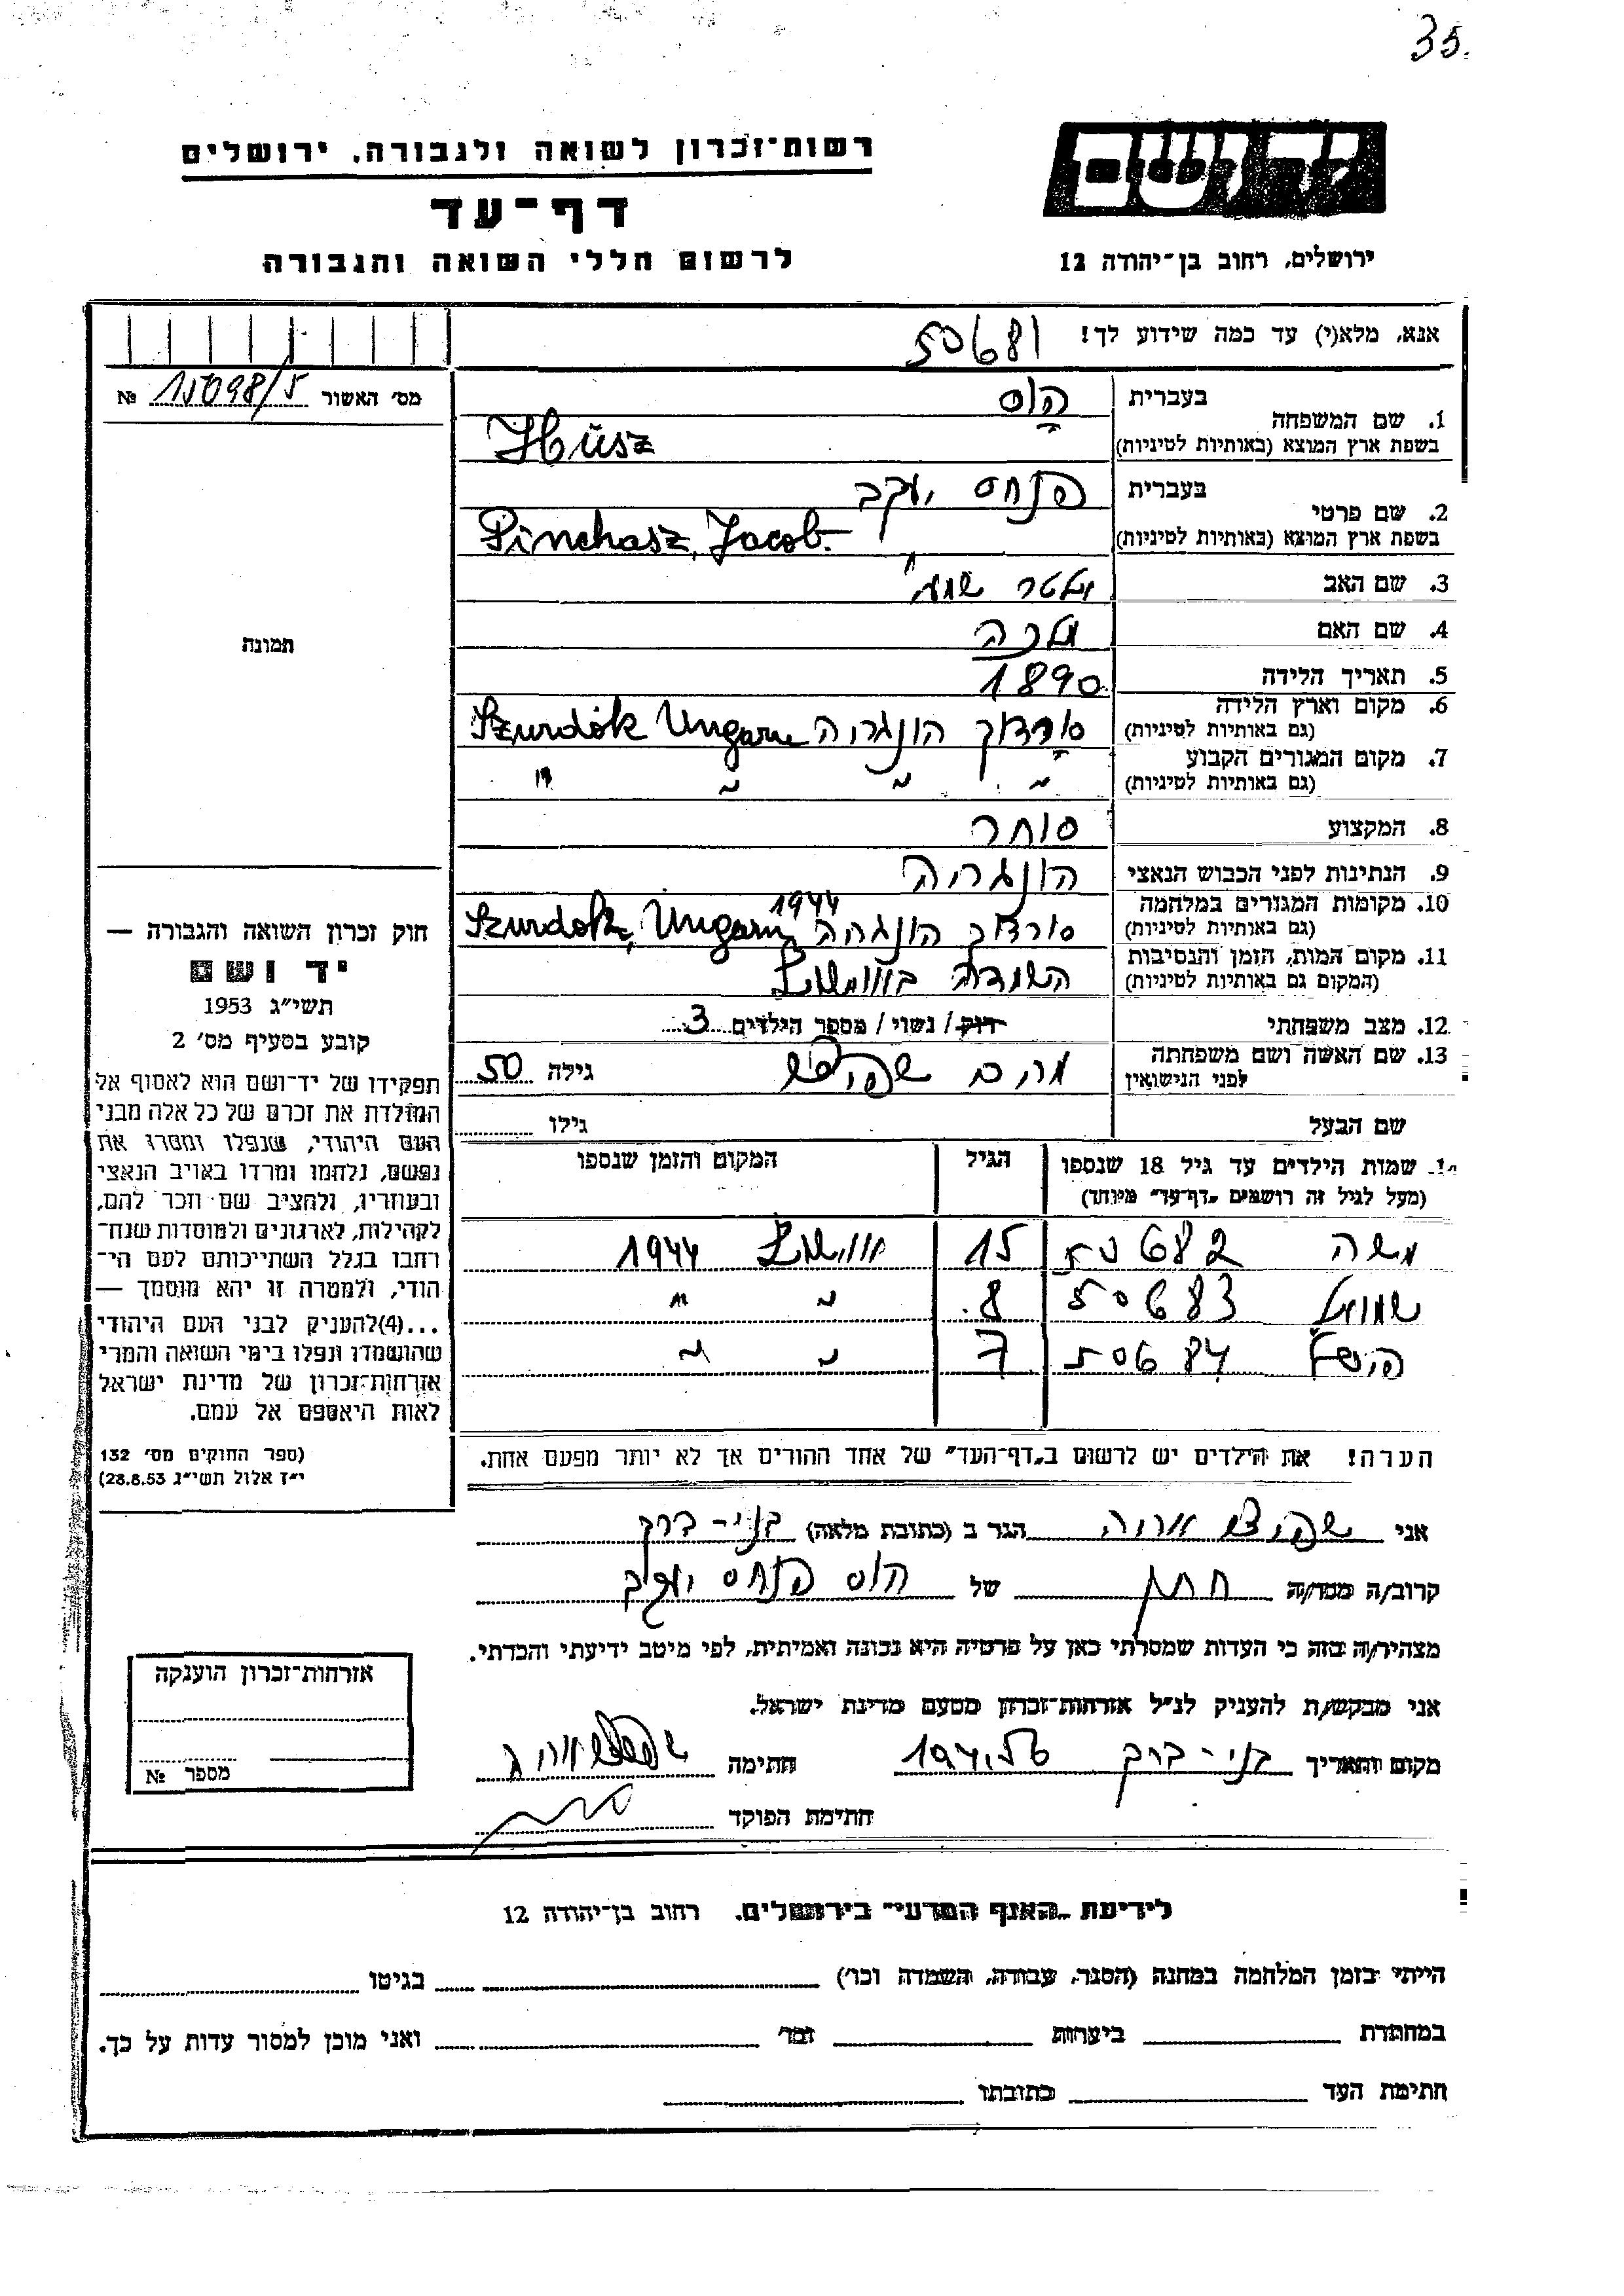 35.
רשות-זכרון לשואה ולגבורה, ירושלים
יד ושם
דף-עד
לרשום חללי השואה והגבורה
ירושלים, רחוב בן-יהודה 12
אנא, מלא(י) עד כמה שידוע לך! 50681
מס׳ האשור 15098/5 №
1. שם המשפחה
בעברית הוס
בשפת ארץ המוצא (באותיות לטיניות) Hüsz
2. שם פרטי
בעברית פנחס יעקב
בשפת ארץ המוצא (באותיות לטיניות) Pinchasz, Jacob.
3. שם האב אלטר
4. שם האם מלכה
5. תאריך הלידה 1890
6. מקום וארץ הלידה
(גם באותיות לטיניות) סורדוק הונגריה Szurdók Ungarn
7. מקום המגורים הקבוע
(גם באותיות לטיניות) " " " "
8. המקצוע סוחר
9. הנתינות לפני הכבוש הנאצי הונגריה
10. מקומות המגורים במלחמה 1944
(גם באותיות לטיניות) סורדוק הונגריה Szurdók, Ungarn
11. מקום המות, הזמן והנסיבות
(המקום גם באותיות לטיניות) באושוויץ
12. מצב משפחתי רוק / נשוי / מספר הילדים 3
13. שם האשה ושם משפחתה
לפני הנישואין מרים שפיץ גילה 50
שם הבעל גילו
14. שמות הילדים עד גיל 18 שנספו
(מעל לגיל זה רושמים „דף-עד״ מיוחד)
הגיל
המקום והזמן שנספו
משה 50682 15 אושוויץ 1944
שמואל 50683 8. " "
50684 7 " "
הערה! את הילדים יש לרשום ב„דף-העד״ של אחד ההורים אך לא יותר מפעם אחת.
תמונה
חוק זכרון השואה והגבורה —
יד ושם
תשי״ג 1953
קובע בסעיף מס׳ 2
תפקידו של יד-ושם הוא לאסוף אל
המולדת את זכרם של כל אלה מבני
העם היהודי, שנפלו ומסרו את
נפשם, נלחמו ומרדו באויב הנאצי
ובעוזריו, ולהציב שם וזכר להם,
לקהילות, לארגונים ולמוסדות שנח-
רבו בגלל השתייכותם לעם הי-
הודי, ולמטרה זו יהא מוסמך —
...(4)להעניק לבני העם היהודי
שהושמדו ונפלו בימי השואה והמרי
אזרחות-זכרון של מדינת ישראל
לאות היאספם אל עמם.
(ספר החוקים מס׳ 132
י״ז אלול תשי״ג 28.8.53)
אני שפיץ אריה הגר ב (כתובת מלאה) בני-ברק
קרוב/ה מכר/ה חתן של הוס פנחס יעקב
מצהיר/ה בזה כי העדות שמסרתי כאן על פרטיה היא נכונה ואמיתית, לפי מיטב ידיעתי והכרתי.
אני מבקש/ת להעניק לנ״ל אזרחות-זכרון מטעם מדינת ישראל.
מקום ותאריך בני-ברק 19.4.56 חתימה
חתימת הפוקד
אזרחות-זכרון הוענקה
מספר №
לידיעת „האגף המדעי״ בירושלים, רחוב בן-יהודה 12
הייתי בזמן המלחמה במחנה (הסגר, עבודה, השמדה וכו׳) בגיטו
במחתרת ביערות וכו׳ ואני מוכן למסור עדות על כך.
חתימת העד כתובתו